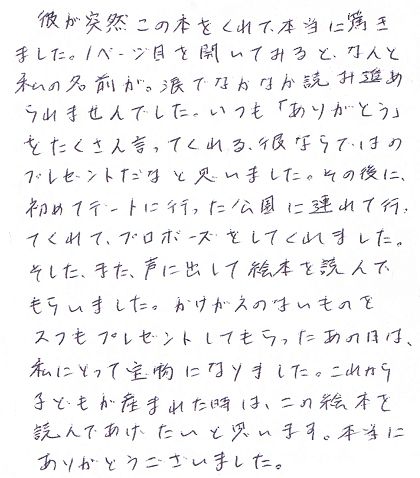 彼が突然この本をくれて、本当に驚き
ました。1ページ目を開いてみると、なんと
私の名前が。涙でなかなか読み進め
られませんでした。いつも「ありがとう」
をたくさん言ってくれる、彼ならではの
プレゼントだなと思いました。その後に、
初めてデートに行った公園に連れて行っ
てくれて、プロポーズをしてくれました。
そした、また、声に出して絵本を読んで
もらいました。かけがえのないものを
2つもプレゼントしてもらったあの日は、
私にとって宝物になりました。これから
子どもが産まれた時は、この絵本を
読んであげたいと思います。本当に
ありがとうございました。